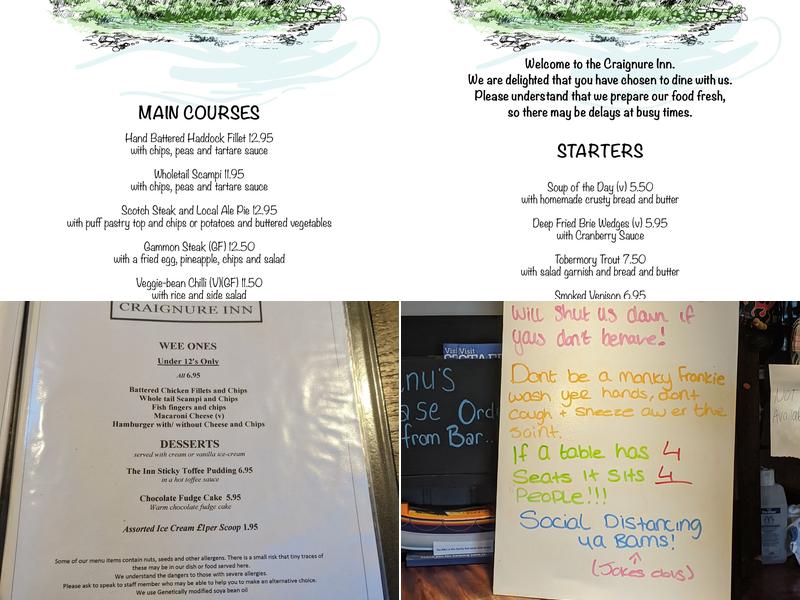 MAIN COURSES
Hand Battered Haddock Fillet 12.95
with chips, peas and tartare sauce
Wholetail Scampi 11.95
with chips, peas and tartare sauce
Scotch Steak and Local Ale Pie 12.95
with puff pastry top and chips or potatoes and buttered vegetables
Gammon Steak (GF) 12.50
with a fried egg, pineapple, chips and salad
Veggie-bean Chilli (V)(GF) 11.50
with rice and side salad
Welcome to the Craignure Inn.
We are delighted that you have chosen to dine with us.
Please understand that we prepare our food fresh,
so there may be delays at busy times.
STARTERS
Soup of the Day (v) 5.50
with homemade crusty bread and butter
Deep Fried Brie Wedges (v) 5.95
with Cranberry Sauce
Tobermory Trout 7.50
with salad garnish and bread and butter
Smoked Venison 6.95
CRAIGNURE INN
WEE ONES
Under 12's Only
All 6.95
Battered Chicken Fillets and Chips
Whole tail Scampi and Chips
Fish fingers and chips
Macaroni Cheese (v)
Hamburger with/ without Cheese and Chips
DESSERTS
served with cream or vanilla ice-cream
The Inn Sticky Toffee Pudding 6.95
in a hot toffee sauce
Chocolate Fudge Cake 5.95
Warm chocolate fudge cake
Assorted Ice Cream £1per Scoop 1.95
Some of our menu items contain nuts, seeds and other allergens. There is a small risk that tiny traces of
these may be in our dish or food served here.
We understand the dangers to those with severe allergies.
Please ask to speak to staff member who may be able to help you to make an alternative choice.
We use Genetically modified soya bean oil
enu's
ase Ord
from Bar..
Visit
will shut us down if
yous don't behave!
Dont be a manky Frankie
wash yer hands, dont
cough + sneeze aw er the
saint.
If a table has 4
Seats it sits 4
People!!!
Social Distancing
ya Bams!
(Jokes doos)
Not
Availa